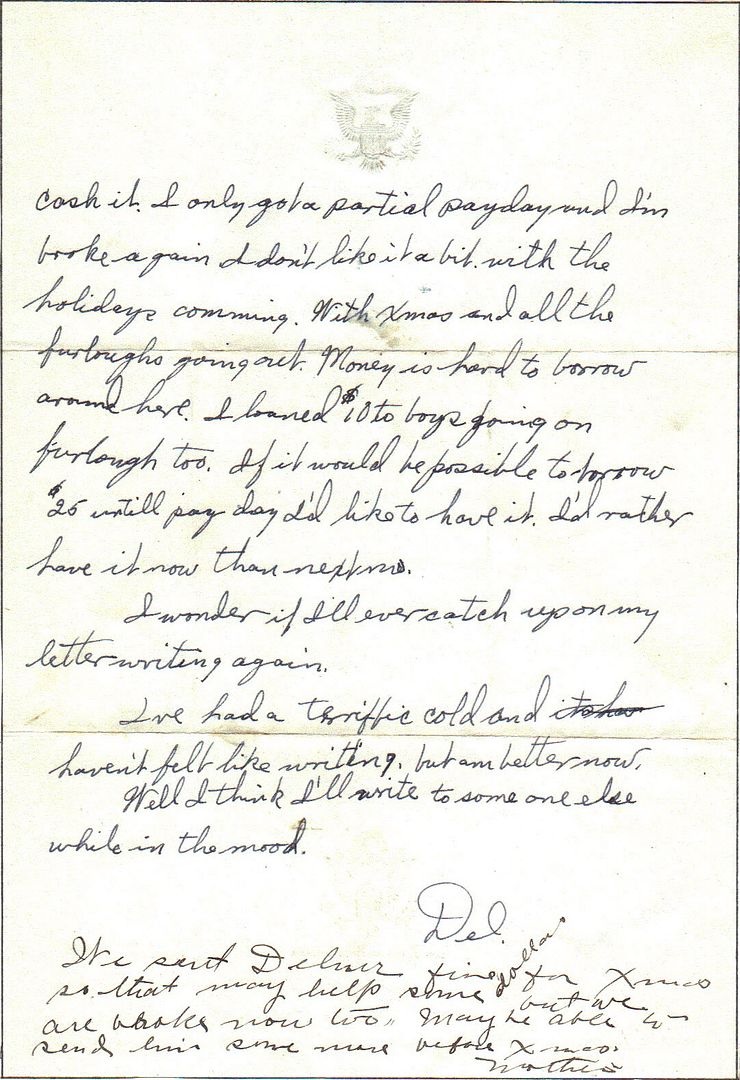 cash it. I only got a partial payday and I'm
broke again I don't like it a bit. with the
holidays comming. With Xmas and all the
furloughs going out. Money is hard to borrow
around here. I loaned $10 to boys going on
furlough too. If it would be possible to borrow
$25 untill pay day I'd like to have it. I'd rather
have it now than next mo.
I wonder if I'll ever catch up on my
letter writing again.
I've had a terriffic cold and
haven't felt like writing. but am better now.
Well I think I'll write to some one else
while in the mood.
Del.
We sent Delmer five dollars for Xmas
so that may help some but we
are broke now too. May be able to
send him some more before Xmas.
Mother